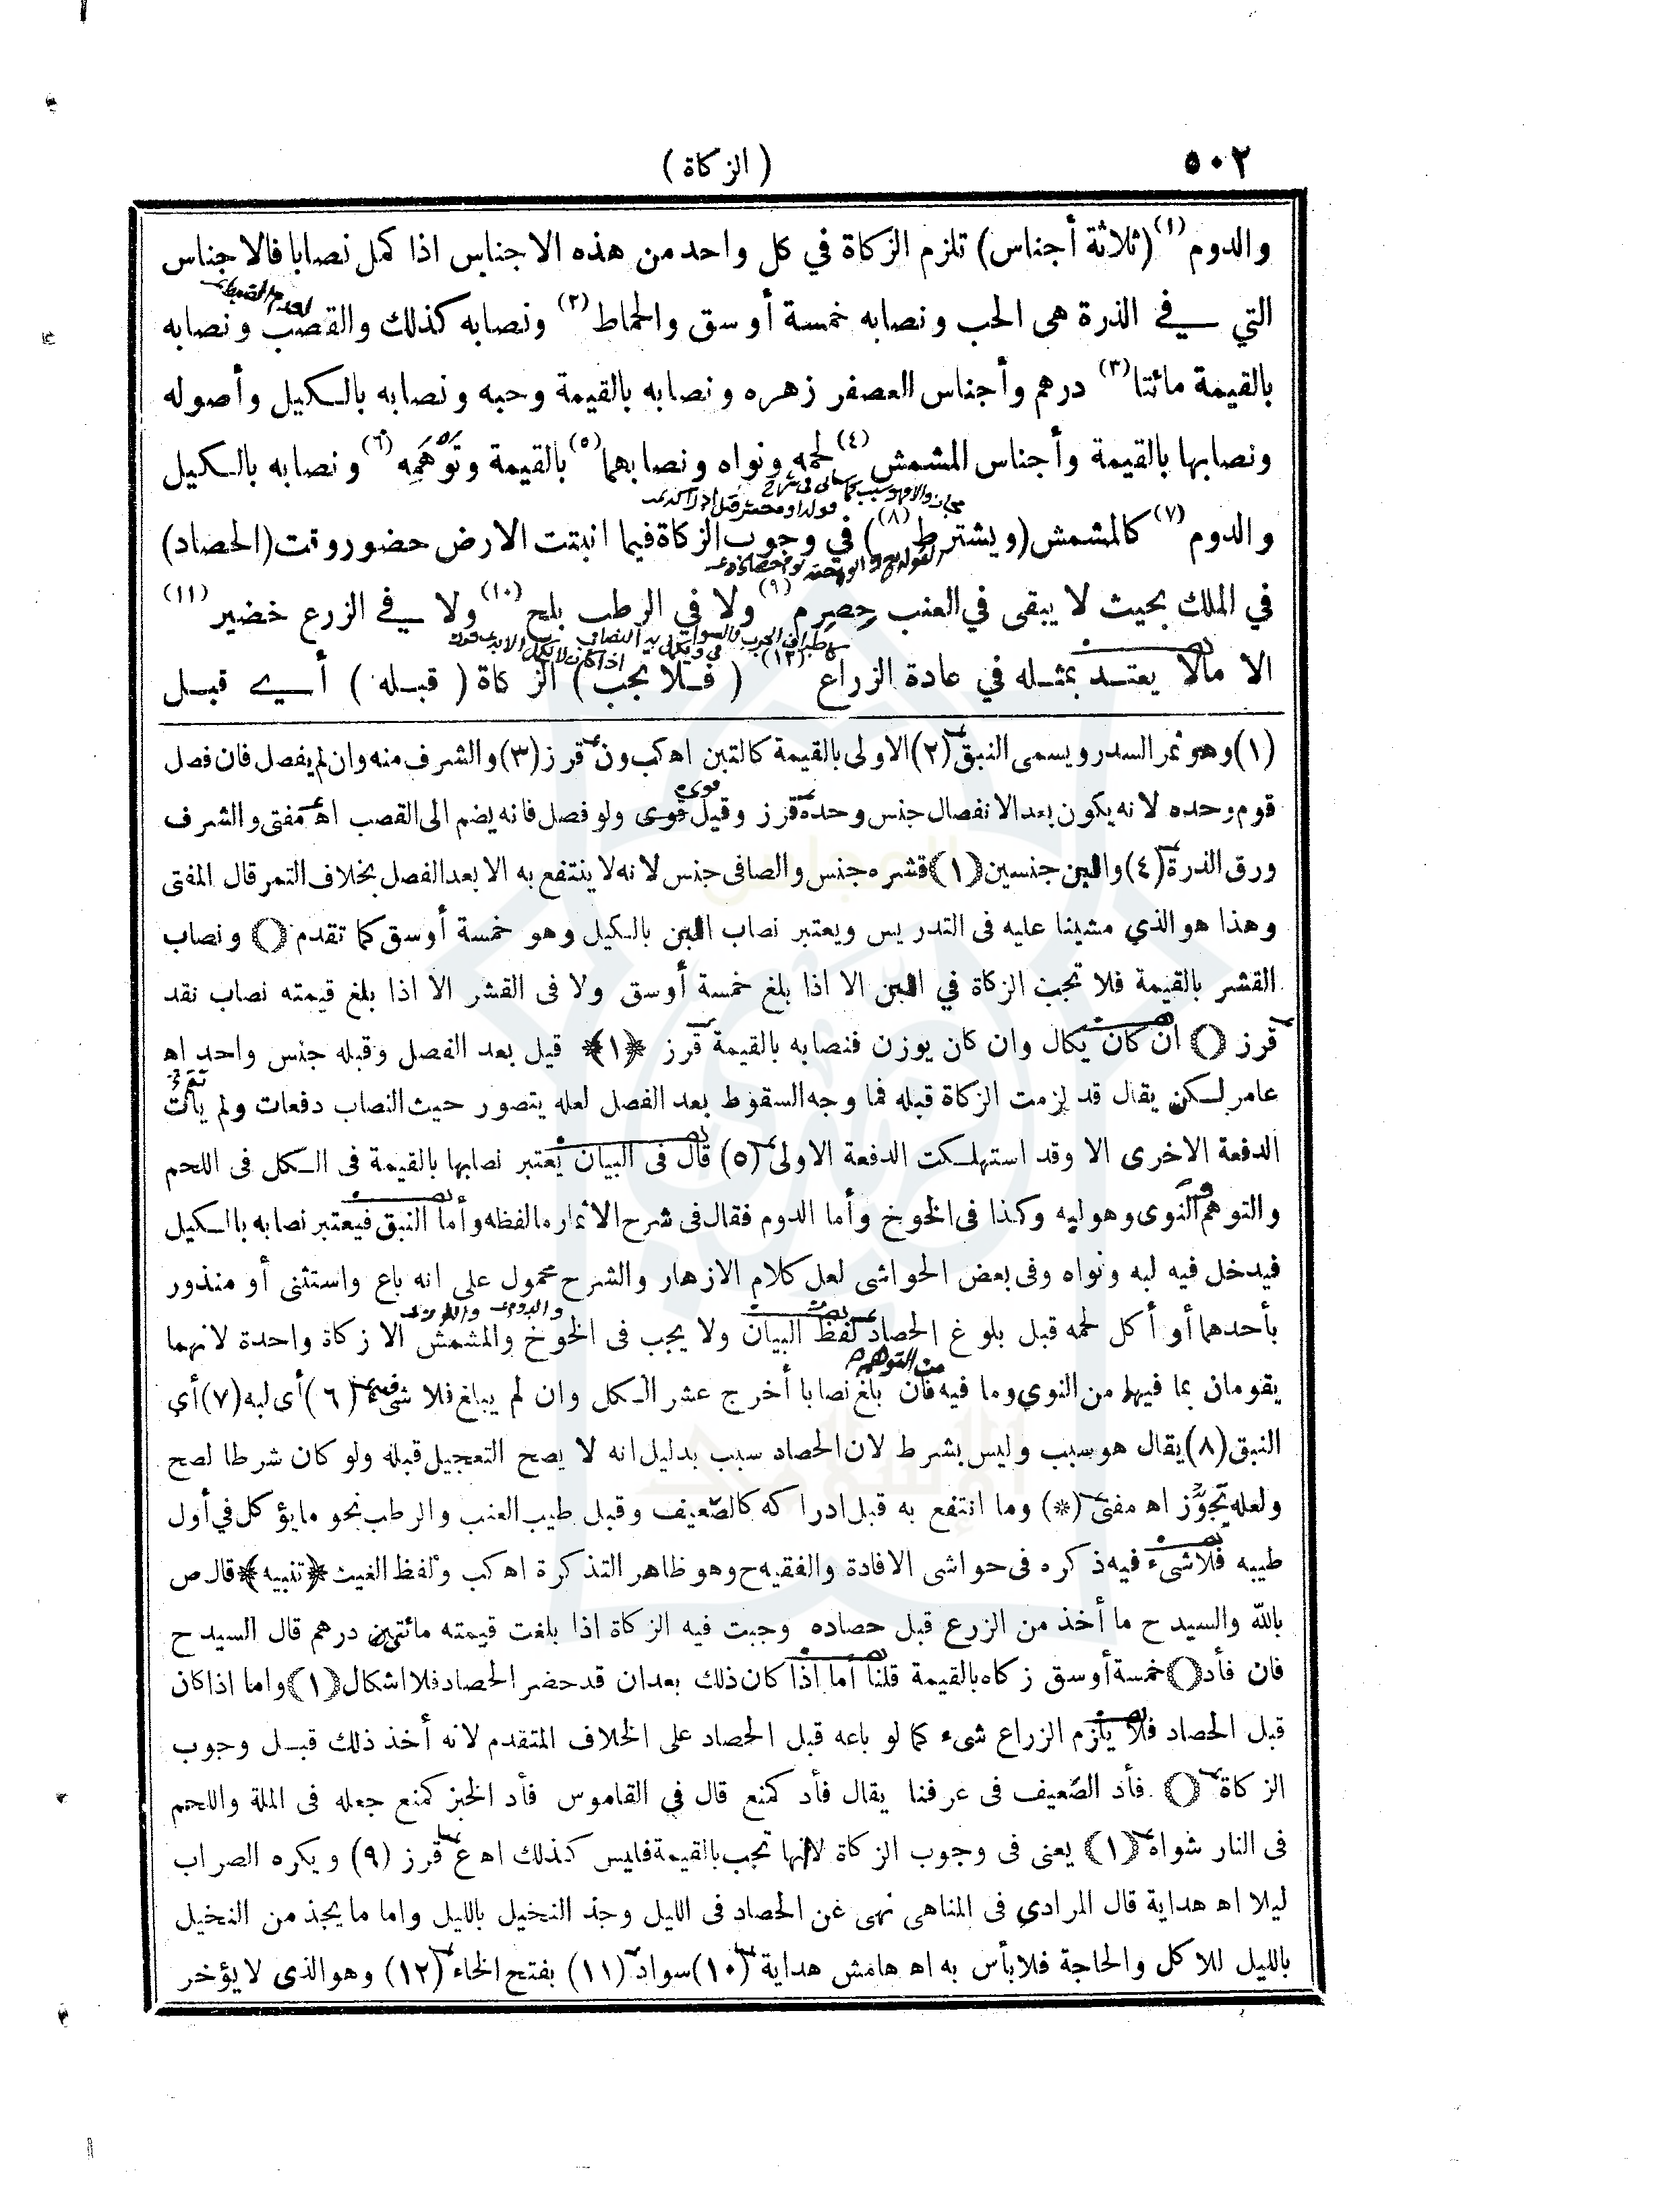 ٥٠٢
( الزكاة )
والدوم (١) (ثلاثة أجناس) تلزم الزكاة في كل واحد من هذه الاجناس اذا كمل نصابا فالاجناس
التي في الذرة هى الحب ونصابه خمسة أوسق والحماط (٢) ونصابه كذلك والقصب ونصابه
بالقيمة مائتا (٣) درهم وأجناس العصفر زهره ونصابه بالقيمة وحبه ونصابه بالكيل وأصوله
ونصابها بالقيمة وأجناس المشمش (٤) لحمه ونواه ونصابهما (٥) بالقيمة وتوهمه (٦) ونصابه بالكيل
والدوم (٧) كالمشمش (ويشترط (٨)) في وجوب الزكاة فيما انبتت الارض حضور وقت (الحصاد)
في الملك بحيث لا يبقى في العنب حصرم (٩) ولا في الرطب بلح (١٠) ولا في الزرع خضير (١١)
الا مالا يعتد بمثله في عادة الزراع (١٢) ( فلا يجب ) الزكاة ( قبله ) أي قبل
(١) وهو ثمر السدر ويسمى النبق (٢) الاولى بالقيمة كالتبن اه كب ون قرز (٣) والشرف منه وان لم يفصل فان فصل
قوم وحده لانه يكون بعد الانفصال جنس وحده قرز وقيل قوى ولو فصل فانه يضم الى القصب اه مفتى والشرف
ورق الذرة (٤) والبن جنسين (١) قشره جنس والصافى جنس لانه لا ينتفع به الا بعد الفصل بخلاف التمر قال المفتى
وهذا هو الذي مشينا عليه فى التدريس ويعتبر نصاب البن بالكيل وهو خمسة أوسق كما تقدم () ونصاب
القشر بالقيمة فلا تجب الزكاة في البن الا اذا بلغ خمسة أوسق ولا فى القشر الا اذا بلغ قيمته نصاب نقد
قرز () ان كان يكال وان كان يوزن فنصابه بالقيمة قرز ﴿١﴾ قيل بعد الفصل وقبله جنس واحد اه
عامر لكن يقال قد لزمت الزكاة قبله فما وجه السقوط بعد الفصل لعله يتصور حيث النصاب دفعات ولم يأت
الدفعة الاخرى الا وقد استهلكت الدفعة الاولى (٥) قال فى البيان يعتبر نصابها بالقيمة فى الكل فى اللحم
والتوهم النوى وهو لبه وكذا فى الخوخ وأما الدوم فقال فى شرح الاثمار ما لفظه وأما النبق فيعتبر نصابه بالكيل
فيدخل فيه لبه ونواه وفى بعض الحواشى لعل كلام الازهار والشرح محمول على انه باع واستثنى أو منذور
بأحدهما أو أكل لحمه قبل بلوغ الحصاد لفظ البيان ولا يجب فى الخوخ والمشمش الا زكاة واحدة لانهما
يقومان بما فيهما من النوي وما فيه فان بلغ نصابا أخرج عشر الكل وان لم يبلغ فلا شىء (٦) أى لبه (٧) أي
النبق (٨) يقال هو سبب وليس بشرط لان الحصاد سبب بدليل انه لا يصح التعجيل قبله ولو كان شرطا لصح
ولعله تجوز اه مفتى (*) وما انتفع به قبل ادراكه كالصعيف وقبل طيب العنب والرطب نحو ما يؤكل في أول
طيبه فلا شىء فيه ذكره فى حواشى الافادة والفقيه ح وهو ظاهر التذكرة اه كب ولفظ الغيث ﴿تنبيه﴾ قال ص
بالله والسيد ح ما أخذ من الزرع قبل حصاده وجبت فيه الزكاة اذا بلغت قيمته مائتين درهم قال السيد ح
فان فأد () خمسة أوسق زكاه بالقيمة قلنا أما اذا كان ذلك بعد ان قد حضر الحصاد فلا اشكال (١) واما اذا كان
قبل الحصاد فلا يلزم الزراع شىء كما لو باعه قبل الحصاد على الخلاف المتقدم لانه أخذ ذلك قبل وجوب
الزكاة () فأد الصعيف فى عرفنا يقال فأد كمنع قال في القاموس فأد الخبز كمنع جعله فى الملة واللحم
فى النار شواه (١) يعنى فى وجوب الزكاة لانها تجب بالقيمة فليس كذلك اه ع قرز (٩) ويكره الصراب
ليلا اه هداية قال المرادي فى المناهى نهى عن الحصاد فى الليل وجذ النخيل بالليل واما ما يجذ من النخيل
بالليل للاكل والحاجة فلا بأس به اه هامش هداية (١٠) سواد (١١) بفتح الخاء (١٢) وهو الذى لا يؤخر